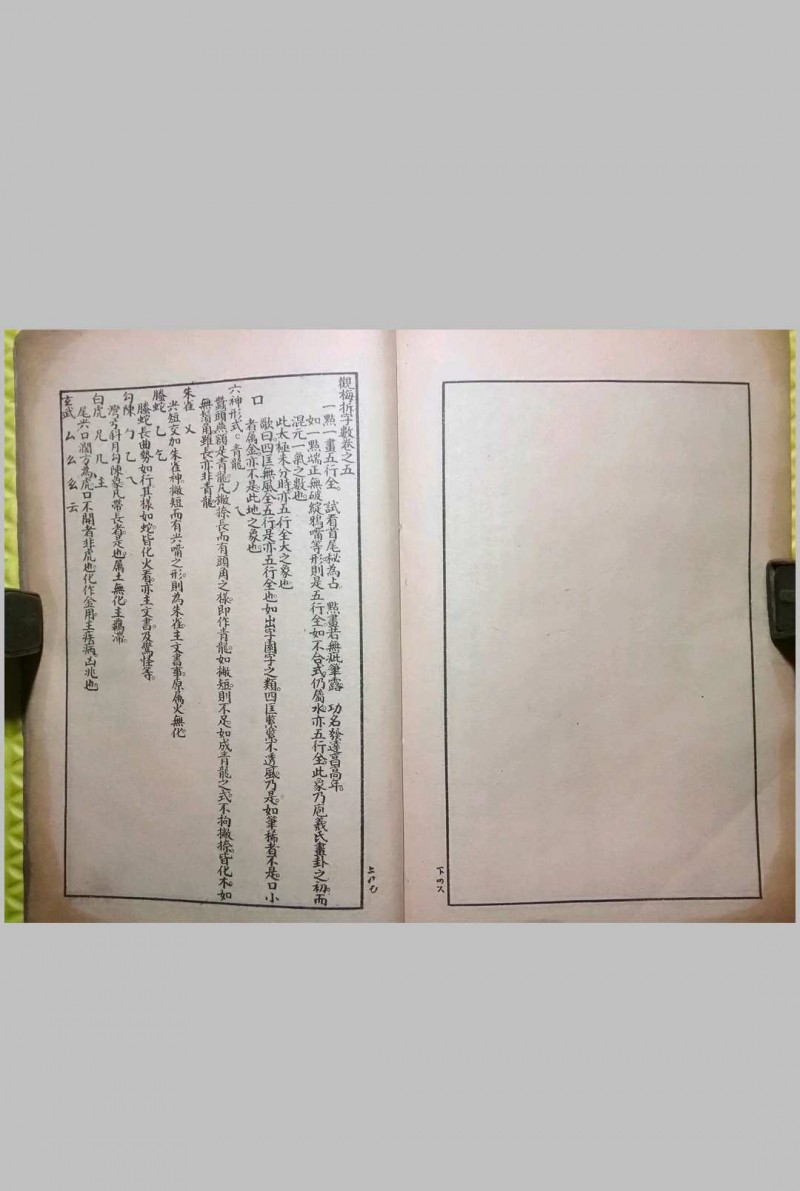 觀梅拆字數卷之五
一點一畫五行全。試看首尾秘為占　點畫若無疵筆露　功名發達昌高年。
如一點端正無破綻鴉嘴等形則是五行全如不合式仍屬水亦五行全此象乃庖羲氏畫卦之初而
混元一氣之數也
此太極未分時亦五行全大之象也
歌曰四匡無風全五行是亦五行全也如出字園字之類。四匡緊緊不透風乃是。如筆稀者不是。口小
口　者屬金亦不是。此地之象也
六神形式。青龍　丿　乀
鬚頭無額是青龍凡撇捺長而有頭角之樣即作青龍如撇短則不足如成青龍之式不拘撇捺。皆化木如
無頭角雖長亦非青龍
朱雀　乂
尖短交加朱雀神撇短而有尖嘴之形則為朱雀主文書事原属火無化
螣蛇　乙　乞
螣蛇長曲勢如行其樣如蛇皆化火看亦主文書。及驚怪等。
勾陳　勹　乙　乀
灣弓斜月勾陳象凡帶長者是也属土無化主羈滯。
白虎　凡　几　主
尾尖口濶方為虎口不開者非虎也化作金用主疾病凶兆也
玄武　厶　么　幺　云
上
下